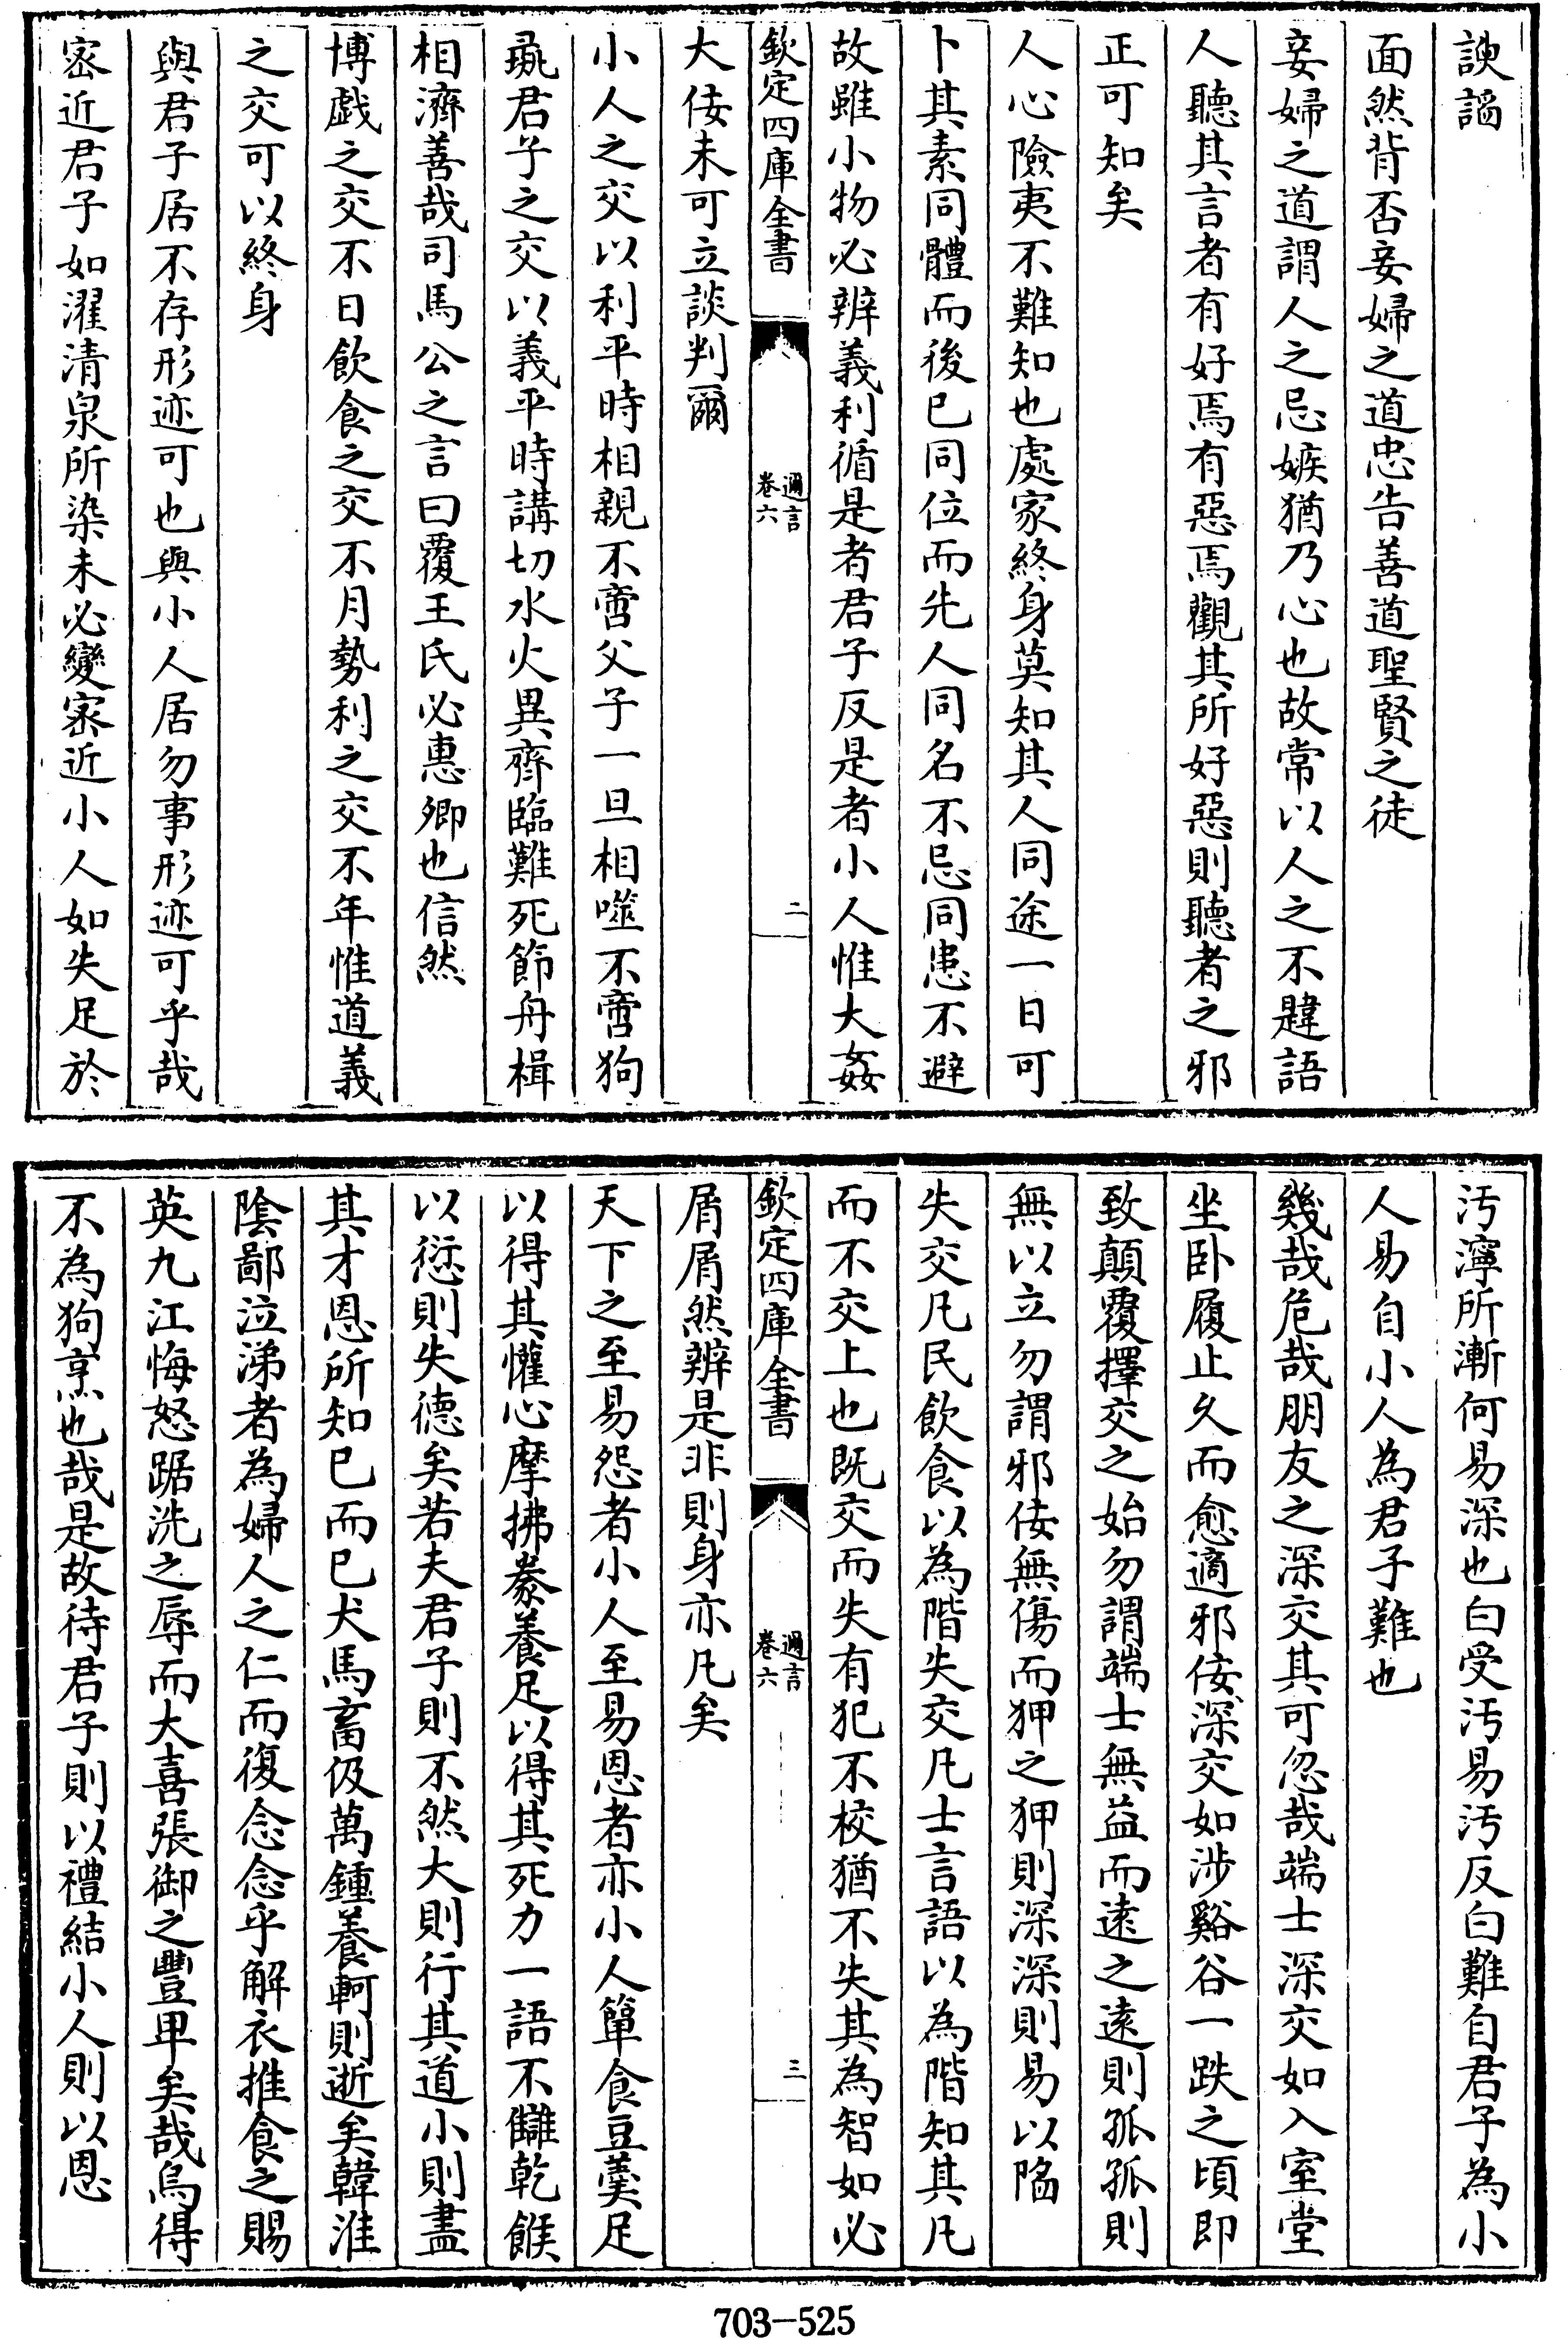 諛謟
面然背否妾婦之道忠告善道聖賢之徒
妾婦之道謂人之忌嫉猶乃心也故常以人之不韙語
人聽其言者有好焉有惡焉觀其所好惡則聽者之邪
正可知矣
人心險夷不難知也處家終身莫知其人同途一日可
卜其素同體而後已同位而先人同名不忌同患不避
故雖小物必辨義利循是者君子反是者小人惟大姦
欽定四庫全書
邇言
卷六
二
大佞未可立談判爾
小人之交以利平時相親不啻父子一旦相噬不啻狗
彘君子之交以義平時講切水火異齊臨難死節舟楫
相濟善哉司馬公之言曰覆王氏必惠卿也信然
博戲之交不日飲食之交不月勢利之交不年惟道義
之交可以終身
與君子居不存形迹可也與小人居勿事形迹可乎哉
宻近君子如濯清泉所染未必變宻近小人如失足於
汚濘所漸何易深也白受汚易汚反白難自君子為小
人易自小人為君子難也
幾哉危哉朋友之深交其可忽哉端士深交如入室堂
坐卧履止久而愈適邪佞深交如涉谿谷一跌之頃即
致顛覆擇交之始勿謂端士無益而遠之遠則孤孤則
無以立勿謂邪佞無傷而狎之狎則深深則易以陷
失交凡民飲食以為階失交凡士言語以為階知其凡
而不交上也既交而失有犯不校猶不失其為智如必
欽定四庫全書
邇言
卷六
三
屑屑然辨是非則身亦凡矣
天下之至易怨者小人至易恩者亦小人簞食豆羮足
以得其懽心摩拂豢養足以得其死力一語不讎乾餱
以愆則失德矣若夫君子則不然大則行其道小則盡
其才恩所知已而已犬馬畜伋萬鍾養軻則逝矣韓淮
陰鄙泣涕者為婦人之仁而復念念乎解衣推食之賜
英九江悔怒踞洗之辱而大喜張御之豐甲矣哉烏得
不為狗烹也哉是故待君子則以禮結小人則以恩
703-525